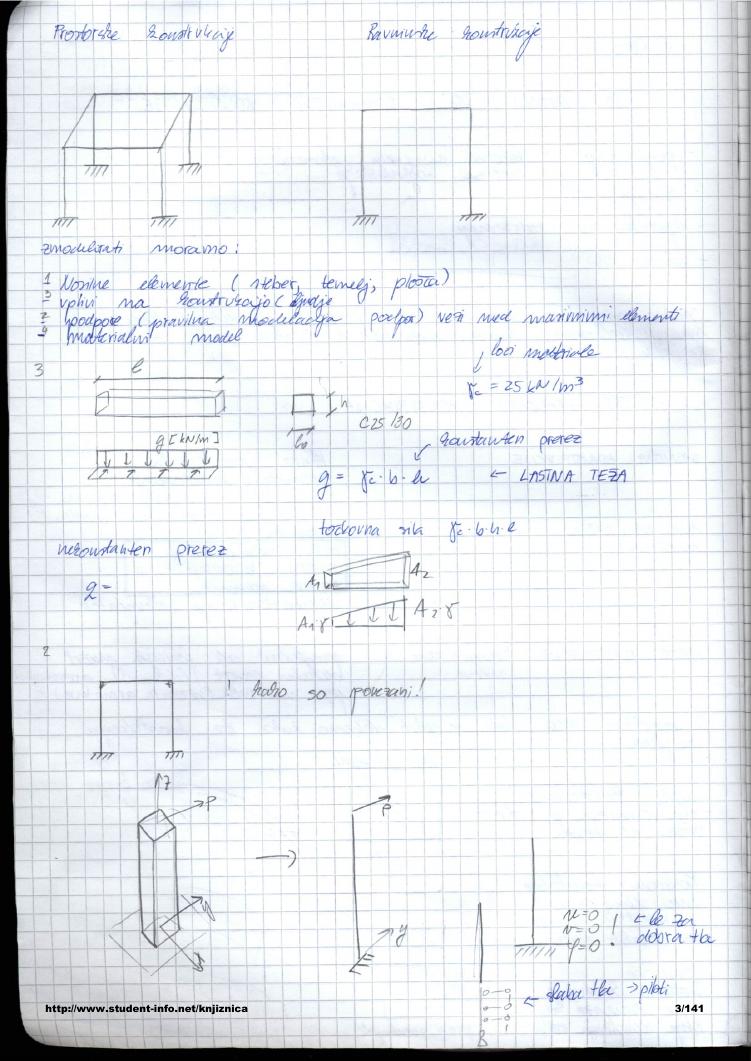 Prostorske konstrukcije
Ravninske konstrukcije
zmodelirati moramo:
1 Nosilne elemente (steber, temelj, plošča)
3 vplivi na konstrukcijo (
2 podpore (pravilna modelacija podpor) vezi med nosilnimi elementi
4 materialni model
loči materiale
3
l
γc = 25 kN/m³
h
b
C25/30
g [kN/m]
konstanten prerez
g = γc · b · h ← LASTNA TEŽA
točkovna sila γc · b · h · l
nekonstanten prerez
g =
A₁
A₂
A₁·γ
A₂·γ
2
! kako so povezani!
z
P
P
y
x
y
u=0
v=0
φ=0
!
← le za
dobra tla
← slaba tla → piloti
http://www.student-info.net/knjiznica
3/141